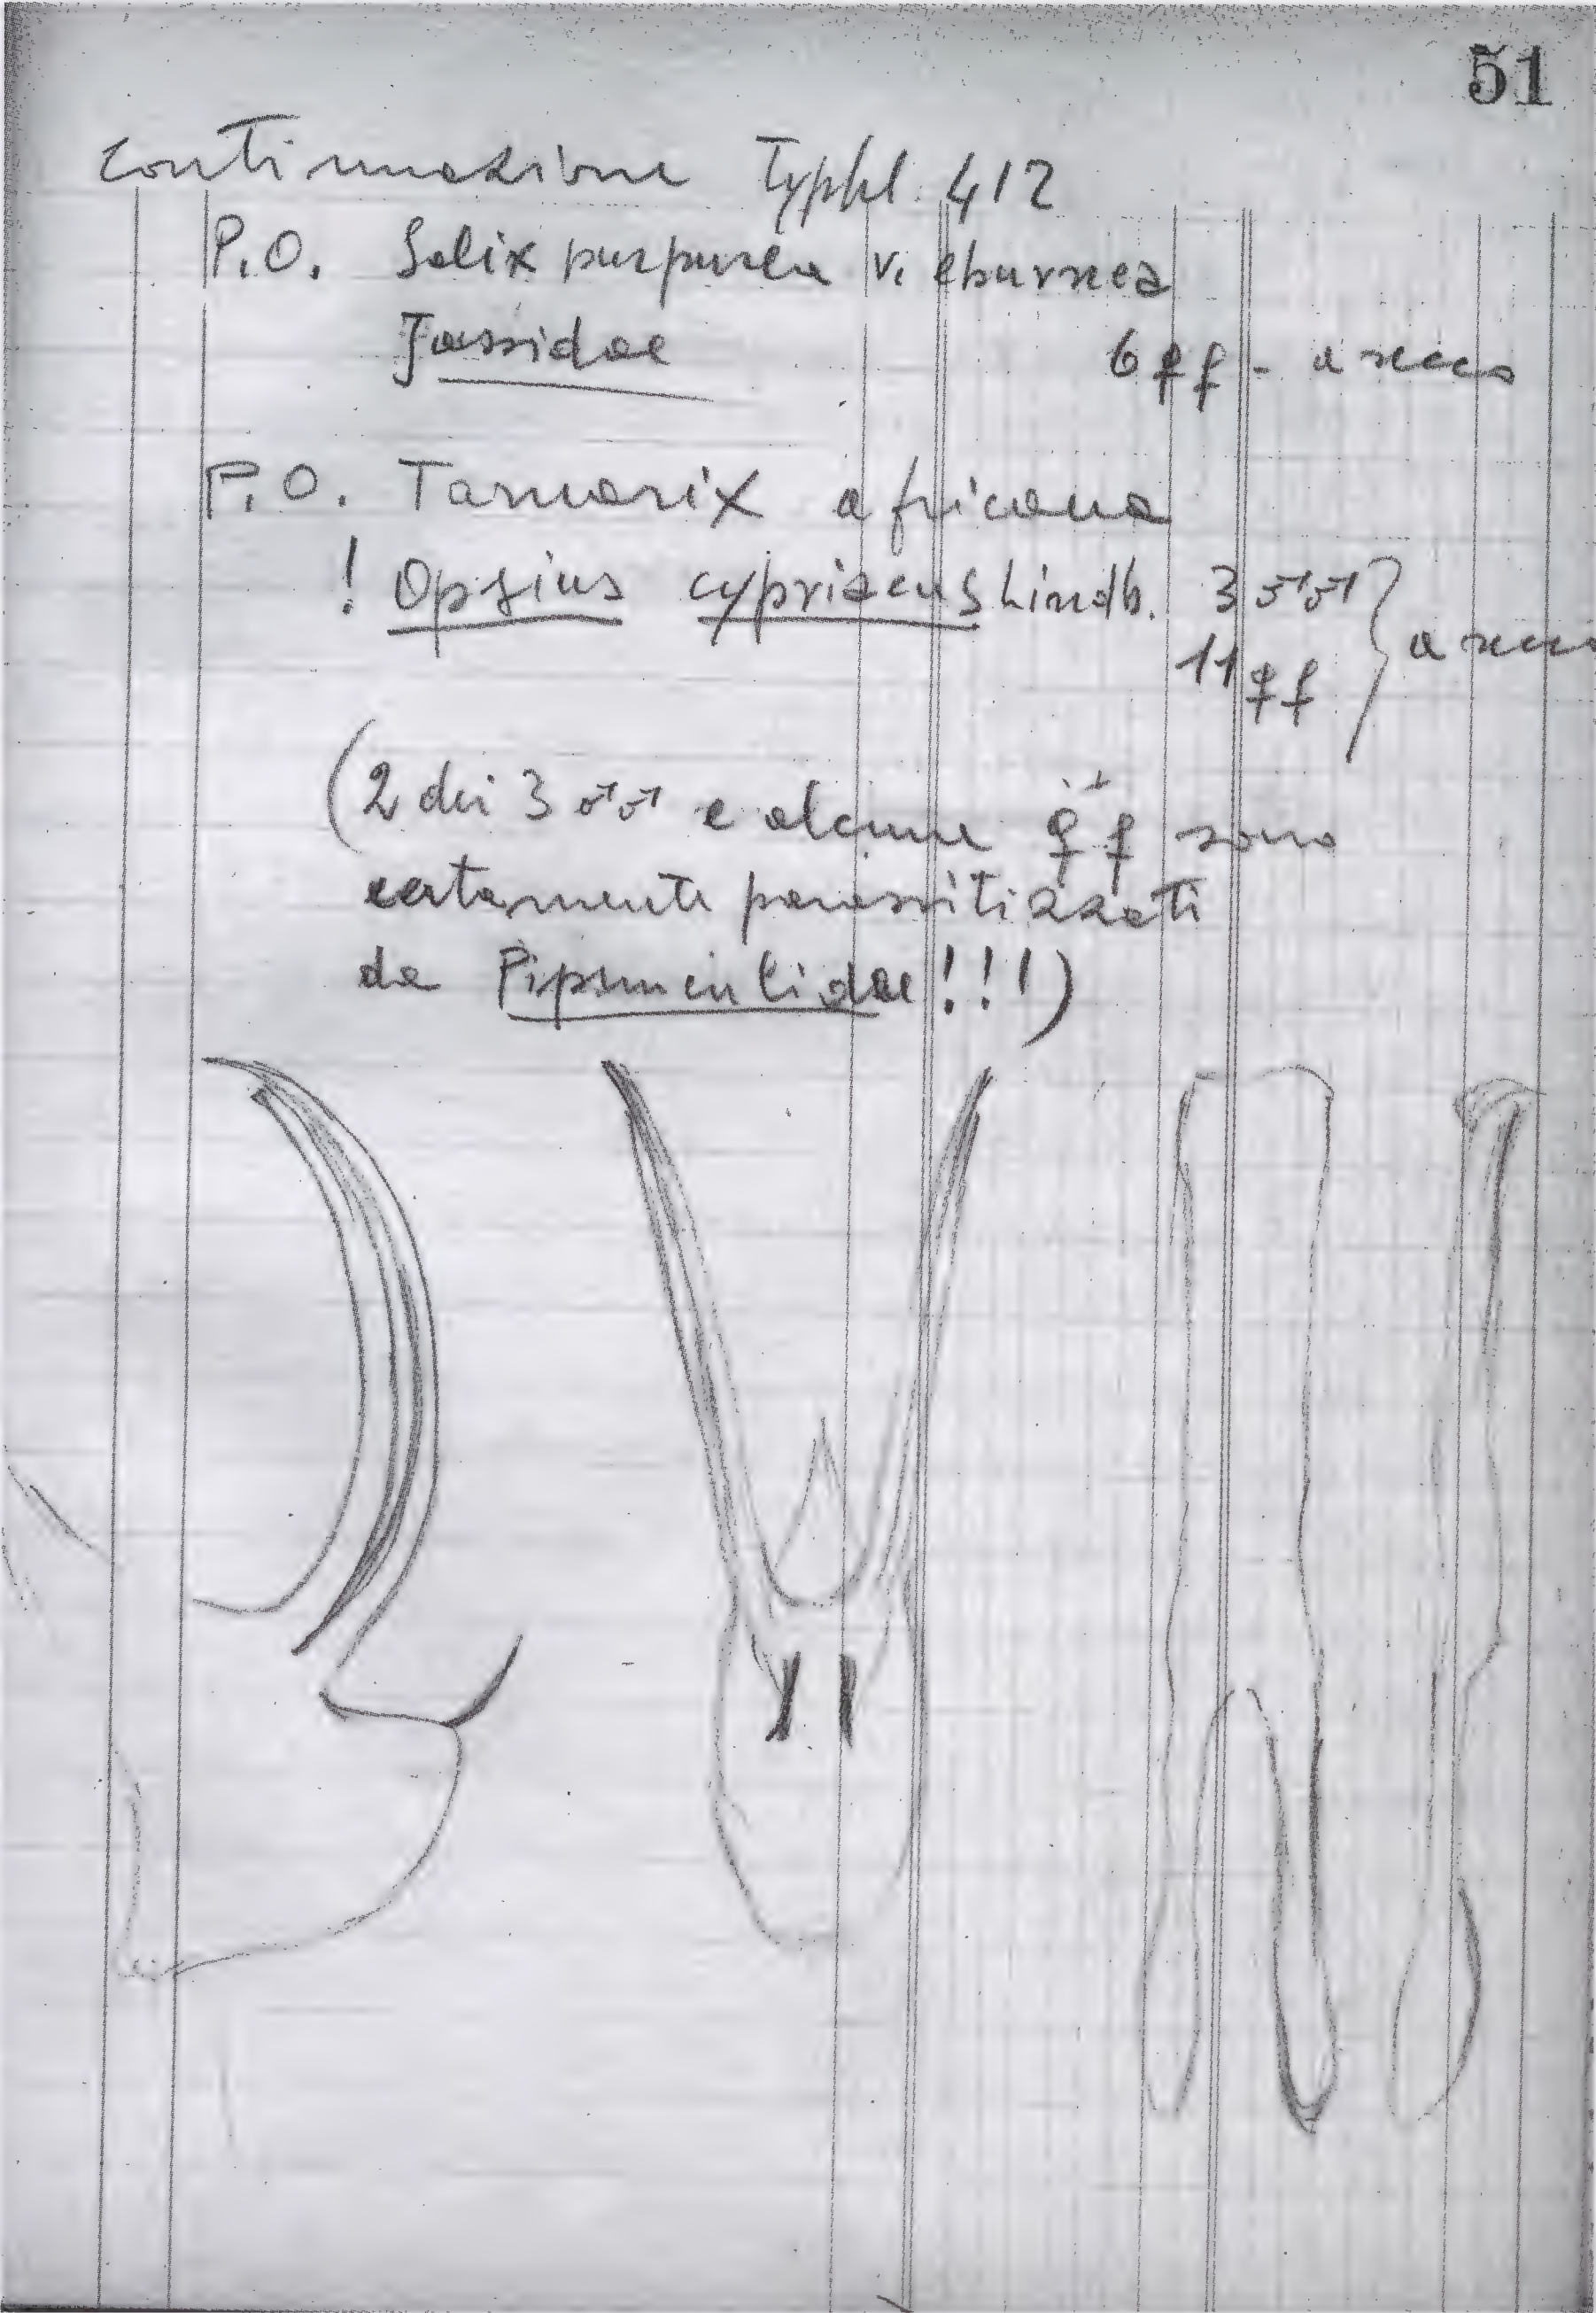 51
continuazione Typhl. 412
P.O. Salix purpurea v. eburnea
Jassidae 6 ♀♀ - a secco
P.O. Tamarix africana
! Opsius cypriacus Lindb. 3 ♂♂
11 ♀♀ a secco
(2 dei 3 ♂♂ e alcune ♀♀ sono
certamente parassitizzati
da Pipunculidae!!!)